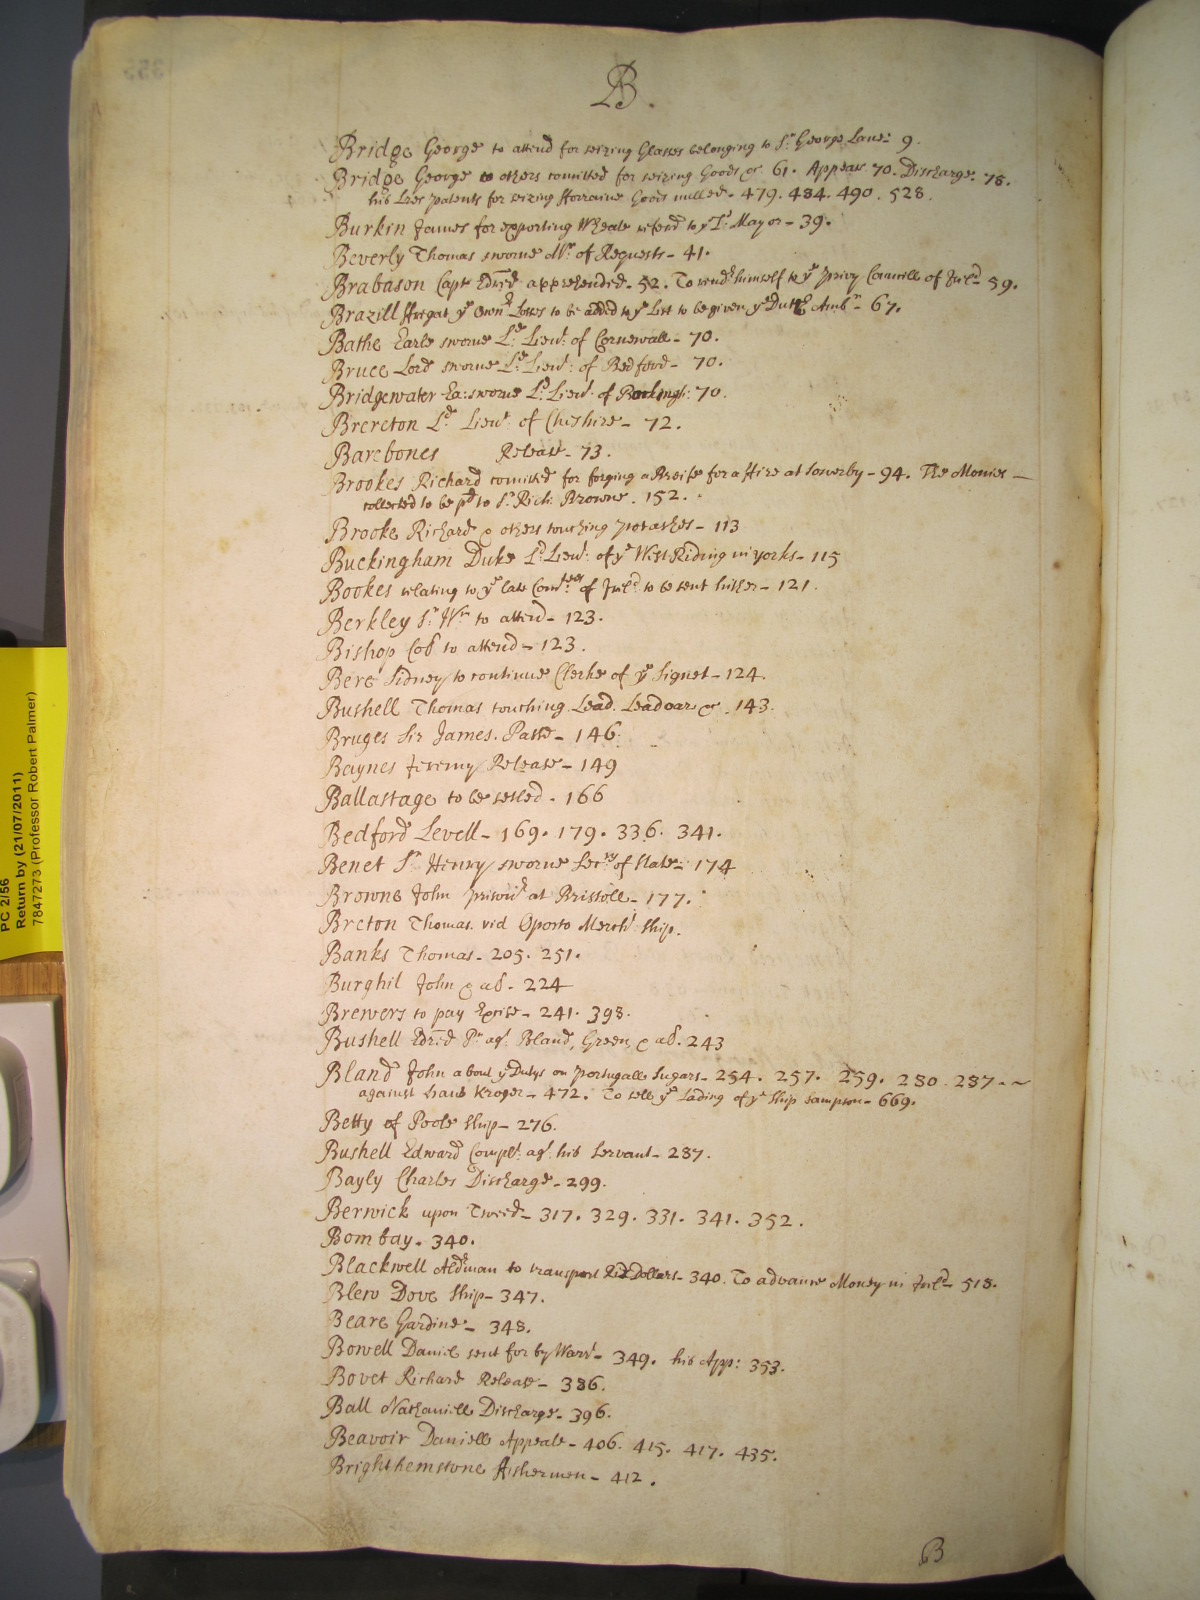 B.
Bridge George to attend for seizing Glasses belonging to Sr. George Lane 9.
Bridge George & others comitted for seizing Goods &c 61. Appeare 70. Discharge. 78.
his Lres patents for seizing fforraine Goods nulled. 479. 484. 490. 528.
Burkin James for exporting Wheate referd to ye Ld. Mayor - 39.
Beverly Thomas sworne Mr. of Requests - 41.
Brabason Capt Edrd. apprehended. 52. To rendr himself to ye privy Councill of Irld. 59.
Brazill ffregat ye Ownrs Losses to be added to ye List to be given ye Dutch Ambr. - 67.
Bathe Earle sworne Ld. Lieut. of Cornewall - 70.
Bruce Lord sworne Ld. Lieut: of Bedford - 70.
Bridgewater Ea: sworne Ld. Lieut. of Buckingh: 70.
Brereton Ld. Lieut. of Cheshire - 72.
Barebones Release - 73.
Brookes Richard comitted for forging a Breife for a ffire at Sowerby - 94. The Monies —
collected to be pd to Sr. Rich: Browne. 152.
Brooke Richard & others touching potashes - 113
Buckingham Duke Ld. Lieut. of ye West Riding in yorks - 115
Bookes relating to ye late Comttees of Irld. to be sent hither - 121.
Berkley Sr. Wm. to attend - 123.
Bishop Col to attend - 123.
Bere Sidney to continue Clerke of ye Signet - 124.
Bushell Thomas touching Lead. Leadoar &c. 143.
Bruges Sir James. Passe - 146.
Baynes Jeremy Release - 149
Ballastage to be setled. 166
Bedford Levell - 169. 179. 336. 341.
Benet Sr. Henry sworne Secry of State - 174
Browne John prisonr at Bristoll - 177.
Breton Thomas. vid Oporto Merchts ship.
Banks Thomas - 205. 251.
Burghil John & al. - 224
Brewers to pay Excise - 241. 398.
Bushell Edrd. Pr. agt. Bland, Green, & al. 243
Bland John about ye Dutys on Portugall Sugars - 254. 257. 259. 280. 287. ~
against hans Kroger - 472. To sell ye Lading of ye ship Sampson - 669.
Betty of Poole ship - 276.
Bushell Edward Complt. agt. his Servant - 287.
Bayly Charles Discharge - 299.
Berwick upon Tweed - 317. 329. 331. 341. 352.
Bombay. 340.
Blackwell Aldrman to transport RixDollars - 340. To advance Money in Irld. 518.
Blew Dove ship - 347.
Beare Gardine - 348.
Bowell Daniel sent for by Warrt. - 349. his App: 353.
Bovet Richard Release - 386.
Ball Nathaniell Discharge. 396.
Beavoir Daniell Appeale - 406. 415. 417. 435.
Brighthemstone ffishermen - 412.
B
PC 2/56
Return by (21/07/2011)
7847273 (Professor Robert Palmer)